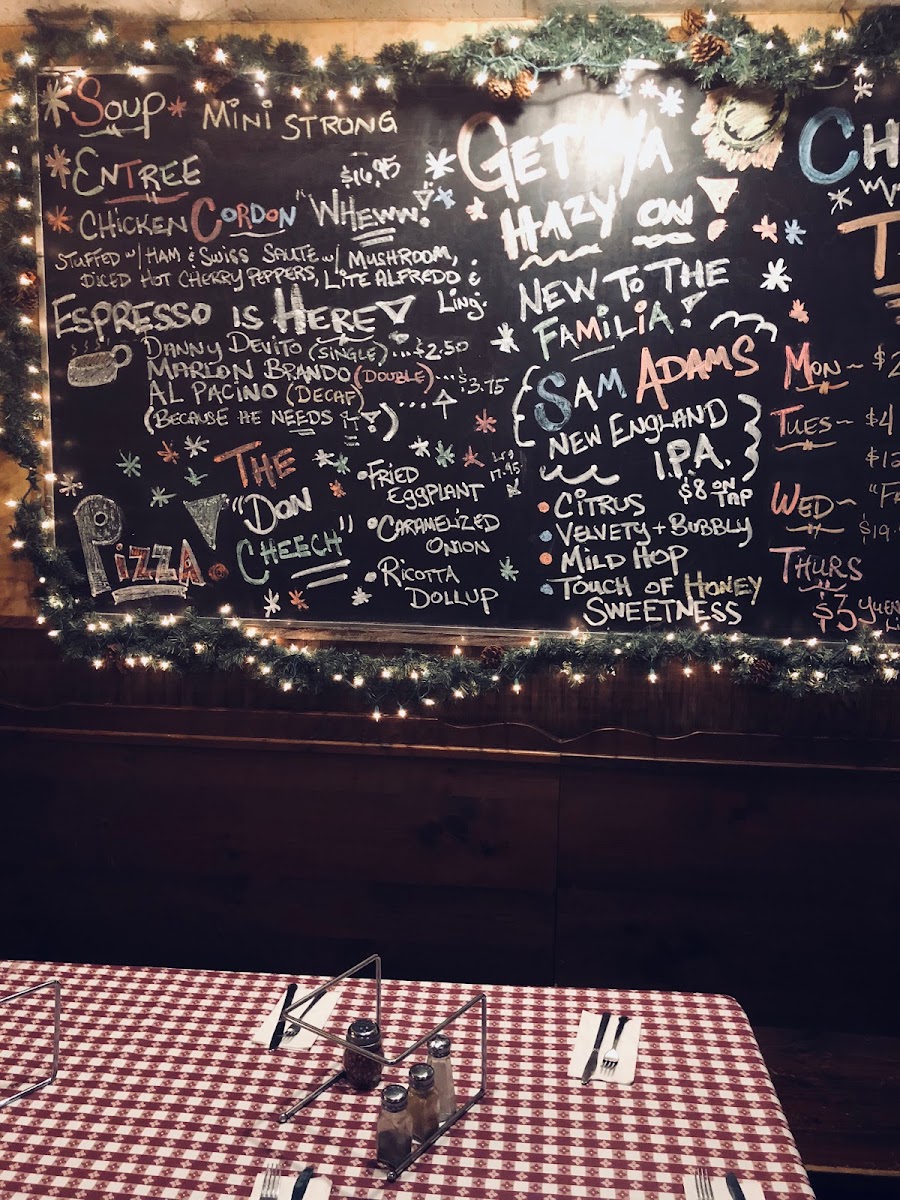 SOUP MINI STRONG
ENTREE
$16.95
CHICKEN CORDON "WHEWW!"
STUFFED W/ HAM & SWISS SAUTE W/ MUSHROOM,
DICED HOT CHERRY PEPPERS, LITE ALFREDO &
LING.
ESPRESSO IS HERE!
DANNY DEVITO (SINGLE)...$2.50
MARLON BRANDO (DOUBLE)...$3.75
AL PACINO (DECAF)....
(BECAUSE HE NEEDS IT!)
PIZZA!
THE
"DON
CHEECH"
• FRIED
EGGPLANT
17.95
• CARAMELIZED
ONION
• RICOTTA
DOLLUP
GET YA
HAZY ON!
NEW TO THE
FAMILIA!
(SAM ADAMS
NEW ENGLAND
I.P.A.)
$8 ON
TAP
• CITRUS
• VELVETY + BUBBLY
• MILD HOP
• TOUCH OF HONEY
SWEETNESS
CH
T
MON ~ $2
TUES ~ $4
$12
WED ~ "FA
$19.
THURS
$3 YUEN
LI